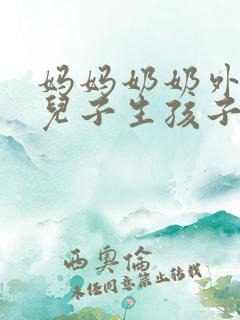 妈妈奶奶外
兒子生孩子
西奧倫
未经同意禁止转载